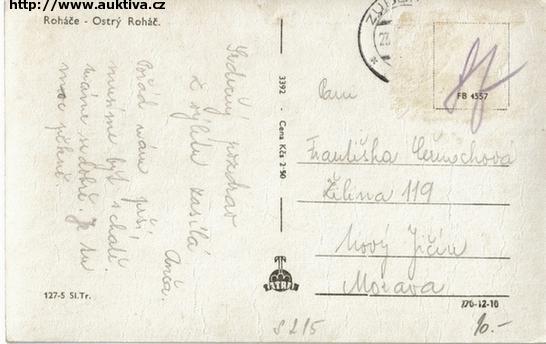 http://www.auktiva.cz
Roháče - Ostrý Roháč.
Srdečný pozdrav
z výletu zasílá
Anča.
Pořád nám prší
musíme být v chatě.
máme se dobře. Je tu
moc pěkně.
3392 - Cena Kčs 2·50
TATRAN
127-5 Sl.Tr.
ZUBER
FB 4557
Paní
Františka
Žilina 119
Nový Jičín
Morava
776-12-10
S 215
10.-